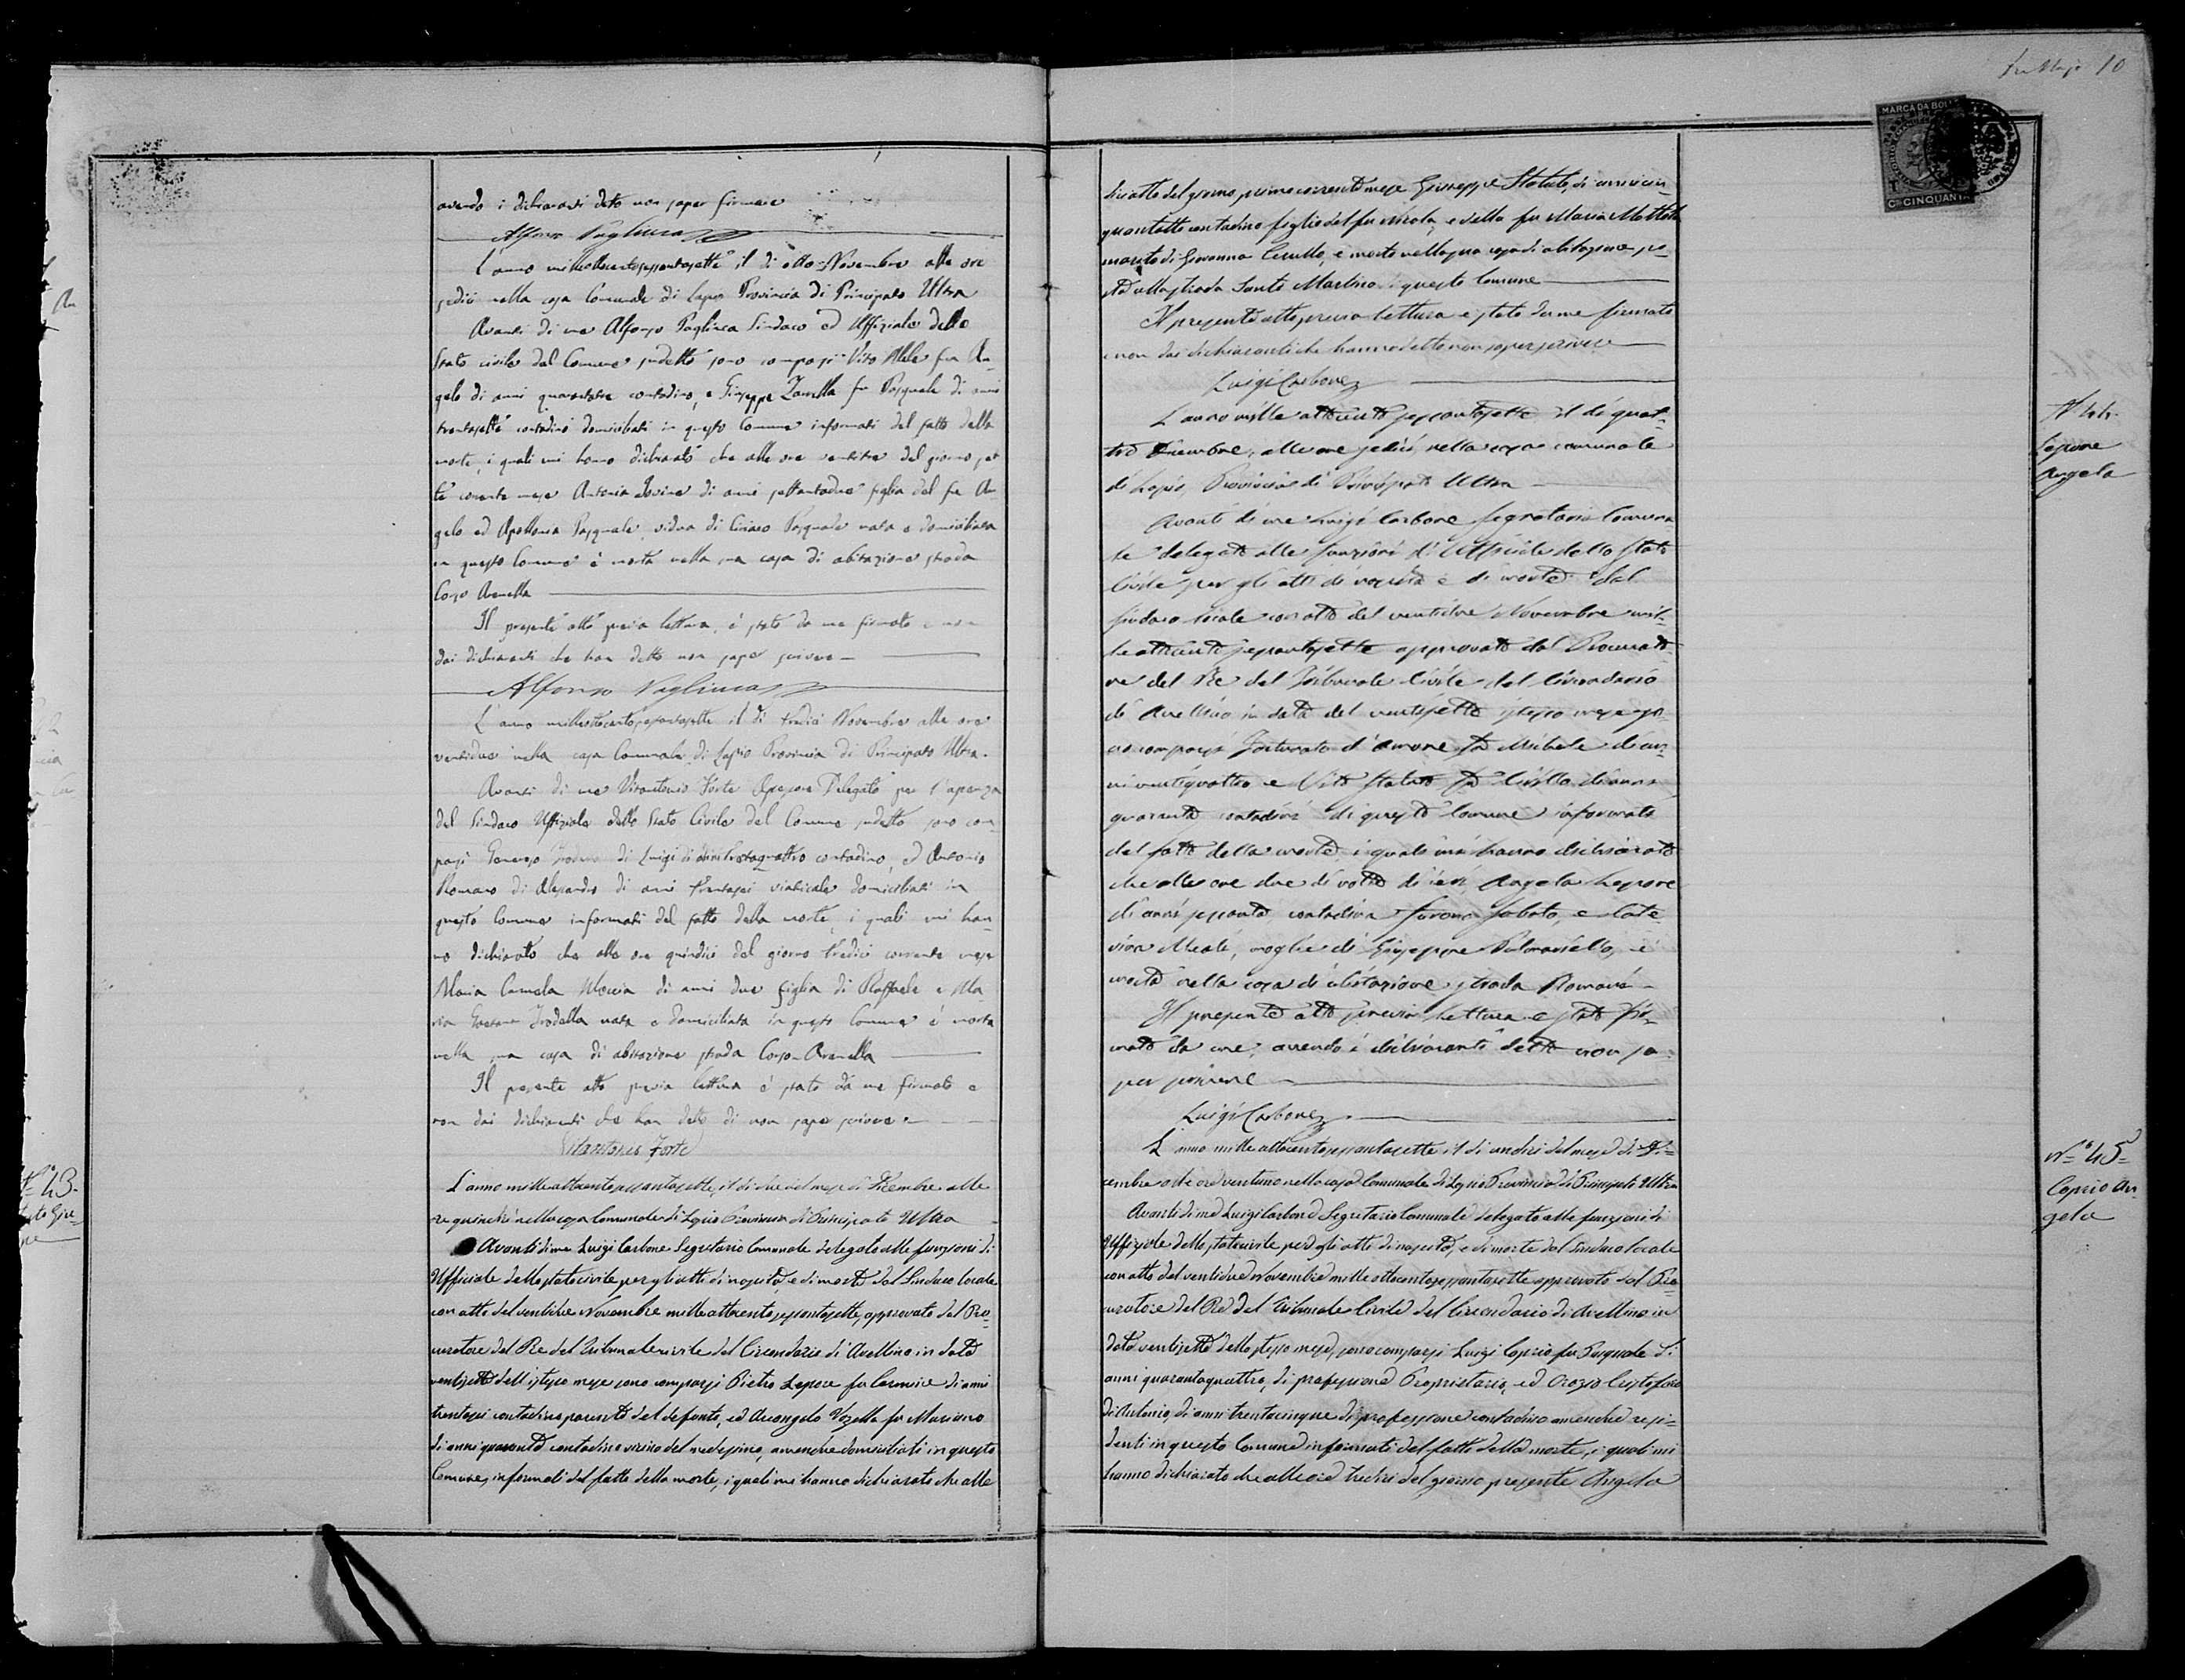 avendo i dichiaranti detto non saper firmare
Alfonso Pagliuca
L'anno milleottocentosessantasette il dì otto Novembre alle ore
sedici nella casa Comunale di Lapio Provincia di Principato Ultra
Avanti di me Alfonso Pagliuca Sindaco ed Uffiziale dello
Stato civile del Comune sudetto sono comparsi Vito Mele fu An-
gelo di anni quarantatre contadino, e Giuseppe Zanella fu Pasquale di anni
trentasette contadino domiciliati in questo Comune informati del fatto della
morte, i quali mi hanno dichiarato che alle ore ventitre del giorno set
te corrente mese Antonia Iovine di anni settantadue figlia del fu An
gelo ed Apollonia Pasquale, vidua di Ciriaco Pasquale nata e domiciliata
in questo Comune è morta nella sua casa di abitazione strada
Corso Aranella
Il presente atto previa lettura, è stato da me firmato e non
dai dichiaranti che han detto non saper scrivere
Alfonso Pagliuca
L'anno milleottocentosessantasette il dì tredici Novembre alle ore
ventidue nella casa Comunale di Lapio Provincia di Principato Ultra.
Avanti di me Vitantonio Forte Assessore Delegato per l'assenza
del Sindaco Uffiziale dello Stato Civile del Comune sudetto sono com
parsi Generoso di Luigi di anni trentaquattro contadino, ed Antonio
Romano di Alesandro di anni trentasei viaticale domiciliati in
questo Comune informati del fatto della morte, i quali mi han
no dichiarato che alle ore quindici del giorno tredici corrente mese
Maria Carmela Moccia di anni due figlia di Raffaele e Ma
ria Gaetana Trodella nata e domiciliata in questo Comune è morta
nella sua casa di abitazione strada Corso Aranella
Il presente atto previa lettura è stato da me firmato e
non dai dichiaranti che han detto di non saper scrivere
Vitantonio Forte
L'anno milleottocentosessantasette, il dì due del mese di Dicembre alle
ore quindici nella casa Comunale di Lapio Provincia di Principato Ultra
Avanti di me Luigi Carbone Segretario Comunale delegato alle funzioni di
Ufficiale dello stato civile per gli atti di nascita, e di morte dal Sindaco locale
con atto del ventidue Novembre milleottocentosessantasette, approvato dal Pro=
curatore del Re del Tribunale civile del Circondario di Avellino in data
ventisette dell'istesso mese sono comparsi Pietro Lepore fu Carmine di anni
trentasei contadino parente del defunto, ed Arcangelo Vozella fu Marino
di anni quaranta contadino vicino del medesimo, amendue domiciliati in questo
Comune, informati del fatto della morte, i quali mi hanno dichiarato che alle
N.° 43.
10
MARCA DA BOLLO
CINQUANTA
dieciotto del giorno primo corrente mese Giuseppe Stalato, di anni cin
quantotto contadino figlio del fu Nicola, e della fu Maria Mottola
marito di Giovanna Cerullo, è morto nella sua casa di abitazione po
sta alla strada Santo Martino di questo Comune
Il presente atto previa lettura è stato da me firmato
e non dai dichiaranti che hanno detto non saper scrivere
Luigi Carbone
L'anno mille ottocento sessantasette il dì quat-
tro Dicembre, alle ore sedici nella casa comunale
di Lapio, Provincia di Principato Ultra
Avanti di me Luigi Carbone Segretario Comuna
le delegato alle funzioni di Uffiziale dello stato
Civile per gli atti di nascita e di morte dal
Sindaco locale con atto del ventidue Novembre mil-
leottocento sessantasette approvato dal Procurato-
re del Re del Tribunale Civile del Circondario
di Avellino in data del ventisette stesso mese so-
no comparsi Fortunato d'Amore fu Michele di an-
ni ventiquattro e Vito Stalato fu di anni
quaranta contadini di questo Comune informati
del fatto della morte, i quali mi hanno dichiarato
che alle ore due di notte di ieri Angela Lepore
di anni sessanta contadina furono Sabato, e Cate
rina Meoli, moglie di Giuseppe Palmariello, è
morta nella casa di abitazione strada Romani
Il presente atto previa lettura è stato fir-
mato da me, avendo i dichiaranti detto non sa-
per scrivere
Luigi Carbone
L'anno milleottocentosessantasette il dì undici del mese di Di=
cembre alle ore ventuno nella casa Comunale di Lapio Provincia di Principato Ultra
Avanti di me Luigi Carbone Segretario Comunale delegato alle funzioni di
Uffiziale dello stato civile per gli atti di nascita, e di morte dal Sindaco locale
con atto del ventidue Novembre mille ottocentosessantasette approvato dal Pro
curatore del Re del Tribunale Civile del Circondario di Avellino in
data ventisette dello stesso mese, sono comparsi Luigi Caprio fu Pasquale di
anni quarantaquattro, di professione Proprietario, ed Orazio Cristofaro
di Antonio, di anni trentacinque di professione contadino amendue resi=
denti in questo Comune informati del fatto della morte, i quali mi
hanno dichiarato che alle ore tredici del giorno presente Angela
N.° 44.
Lepore
Angela
N.° 45=
Caprio An
gela